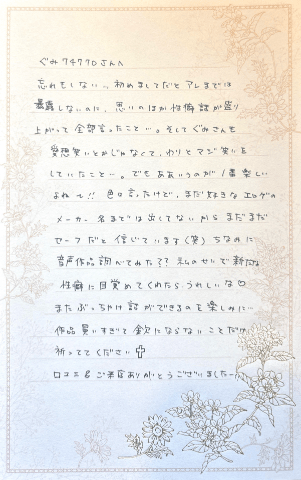 ぐみ74770さんへ
忘れもしない…初めましてだとアレまでは
暴露しないのに、思いのほか性癖話が盛り
上がって全部言ったこと…。そしてぐみさんも
愛想笑いとかじゃなくて、わりとマジ笑いを
していたこと…。でもああいうのが1番楽しい
よねー!! 色々言ったけど、まだ好きなエロゲの
メーカー名までは出してないからまだまだ
セーフだと信じています(笑) ちなみに
音声作品調べてみた?? 私のせいで新たな
性癖に目覚めてくれたらうれしいな♡
またぶっちゃけ話ができるのを楽しみに…
作品買いすぎて金欠にならないことだけ
祈っててください✝
口コミ&ご来店ありがとうございましたー!